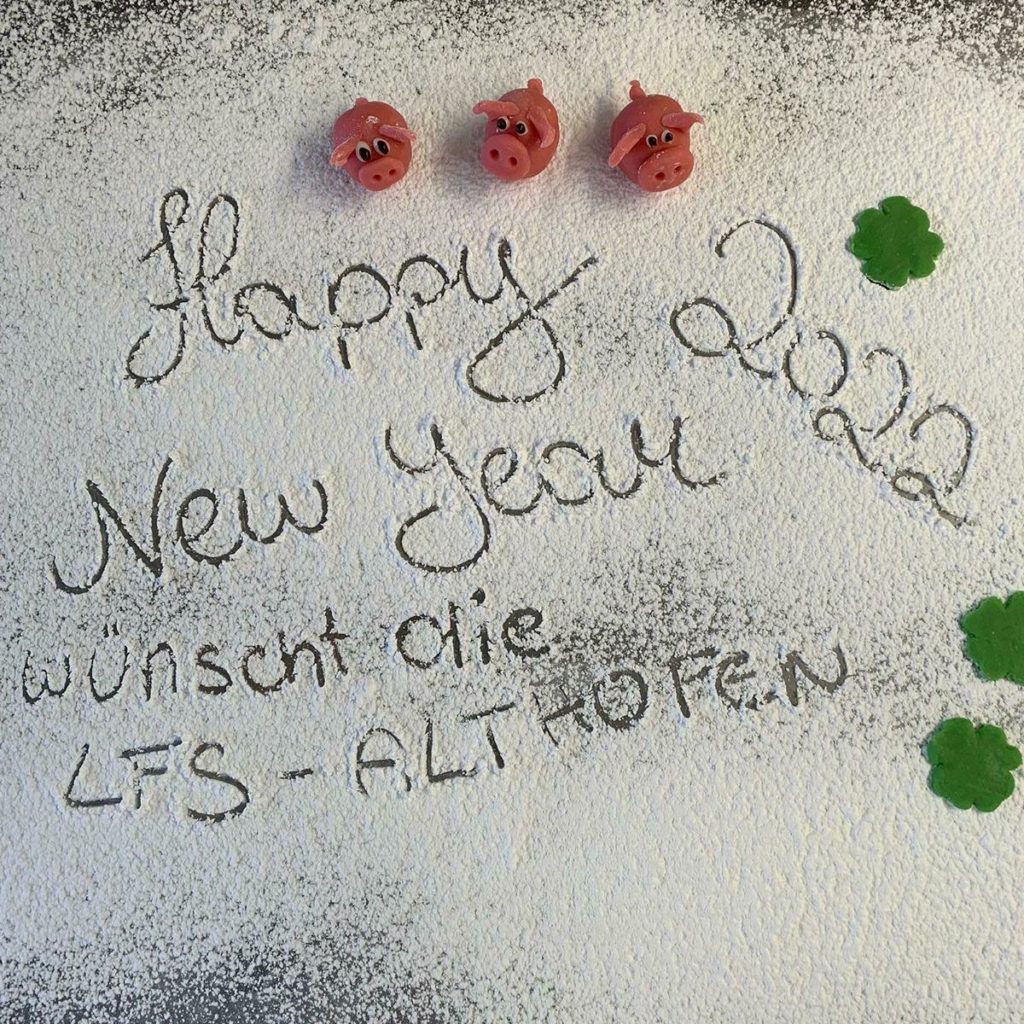 Happy
2022
New Year
wünscht die
LFS - ALTHOFEN